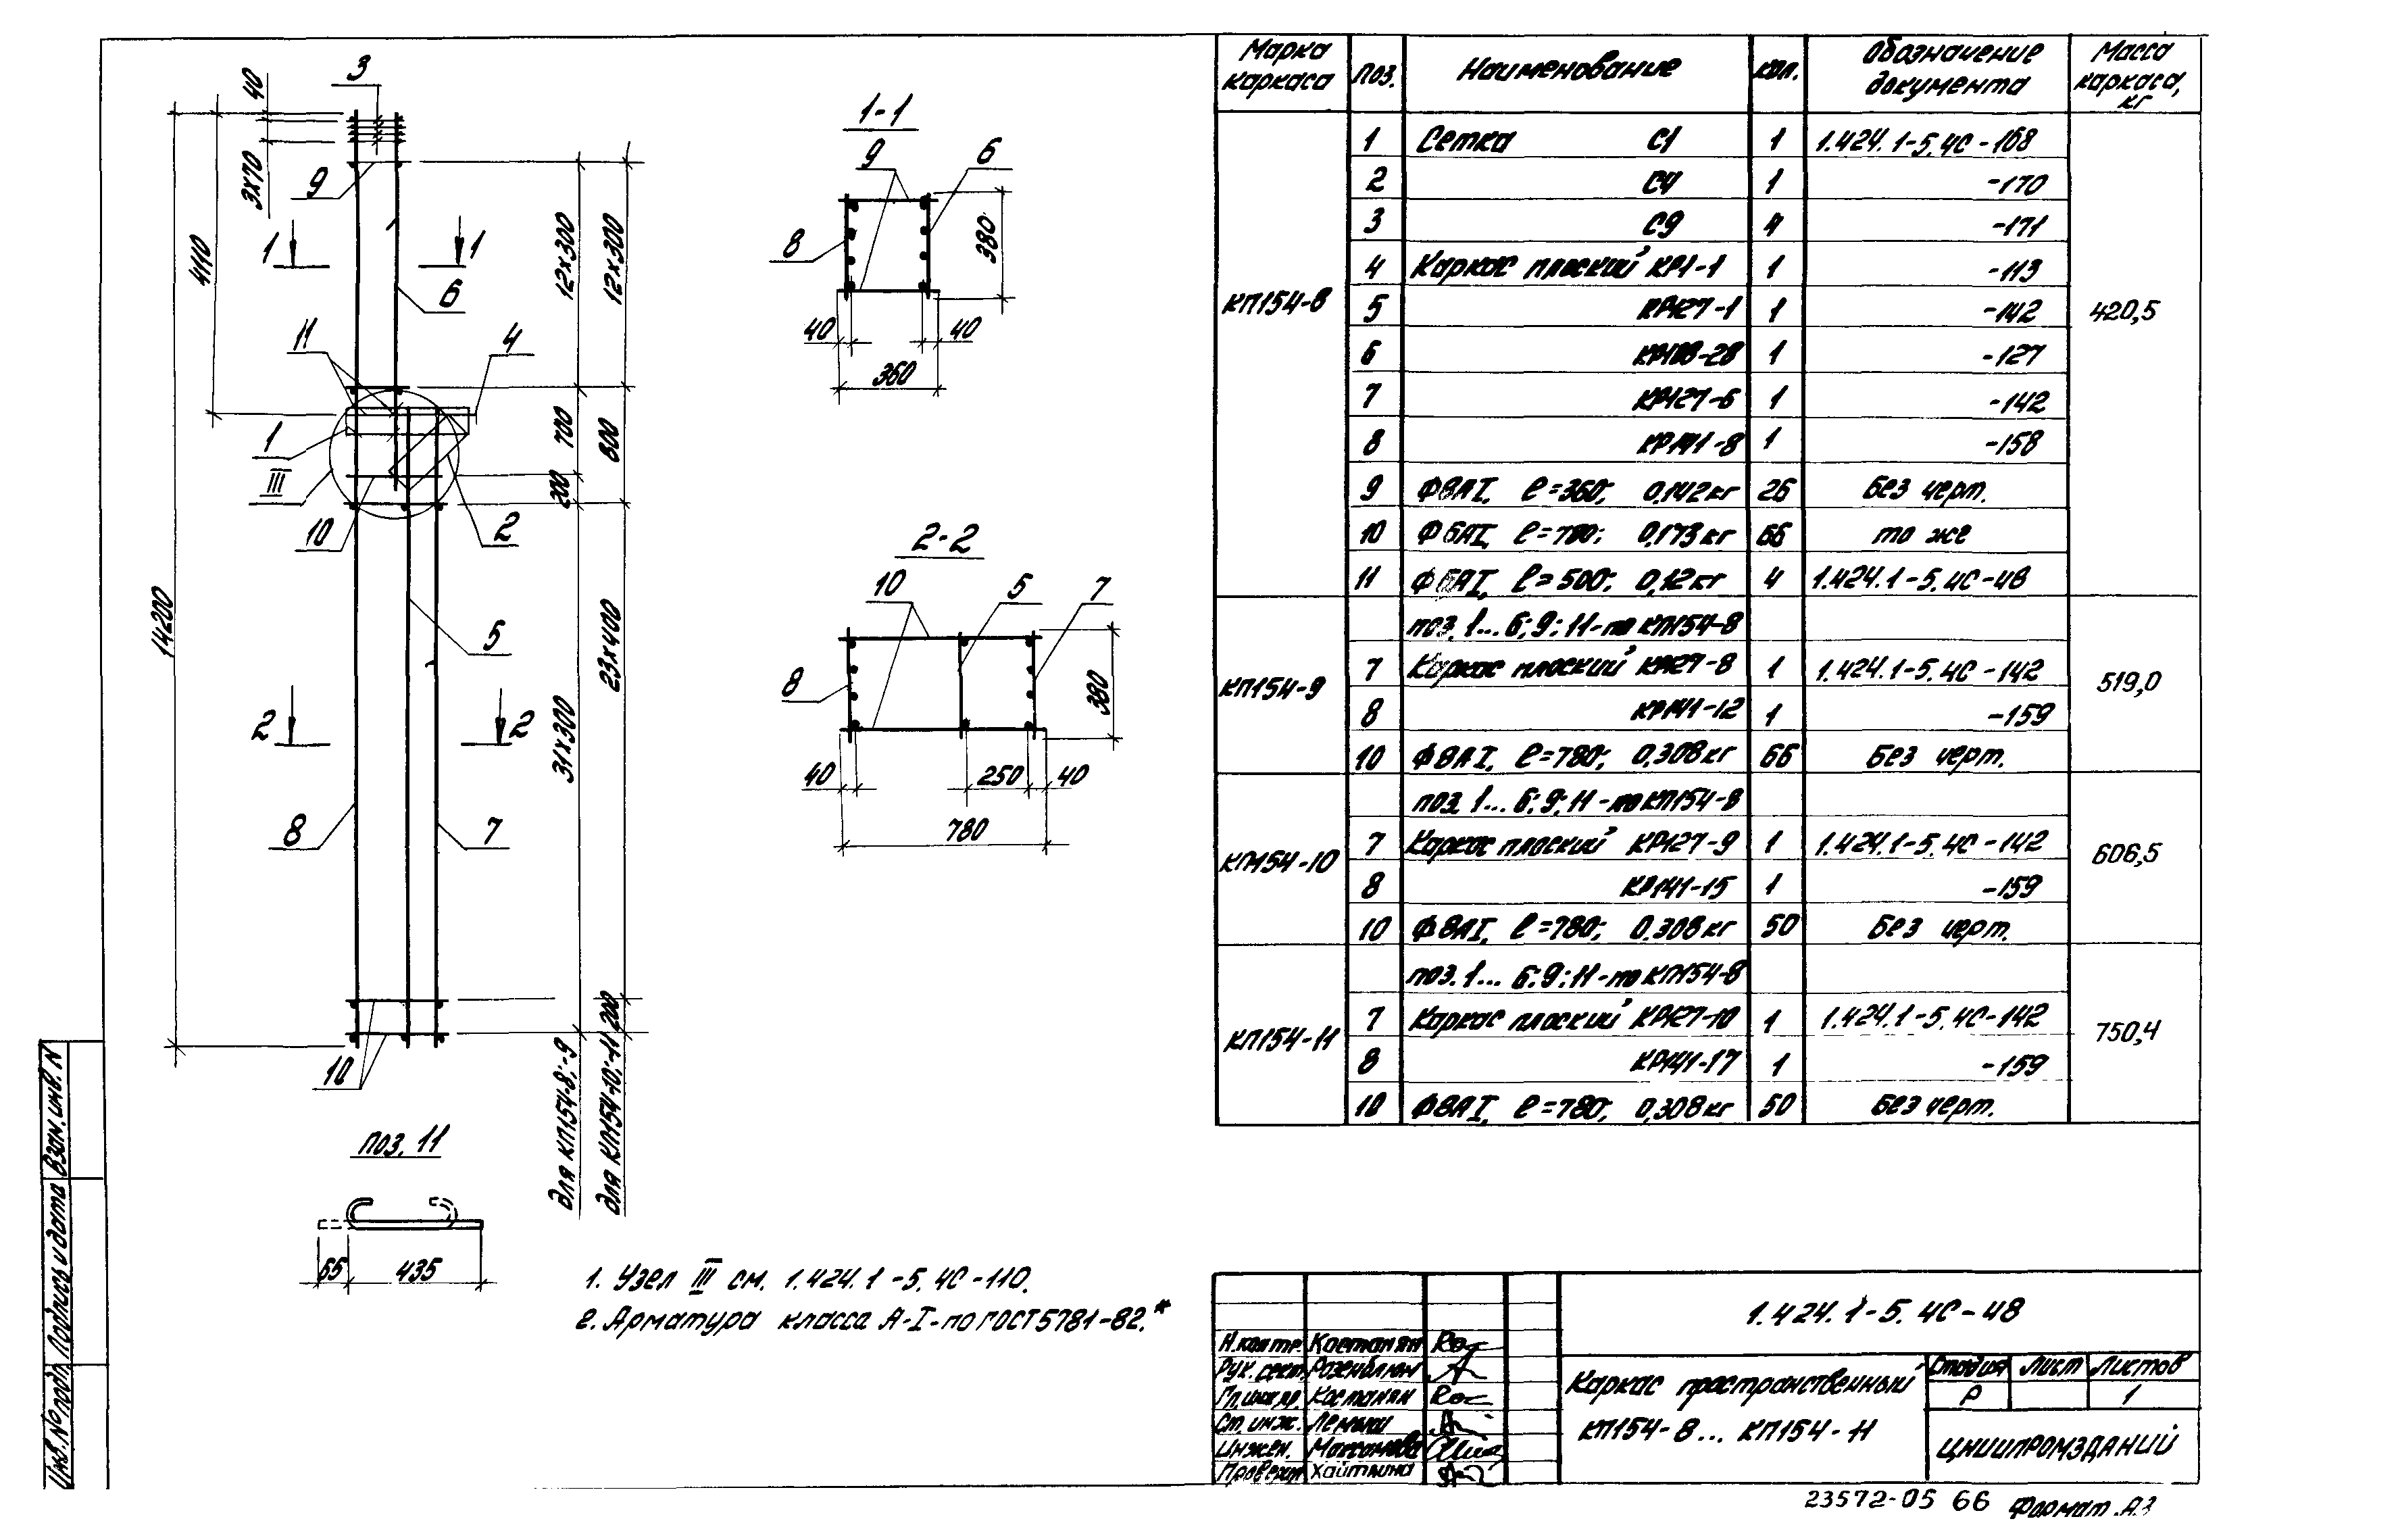 3
40
3х70
9
4110
1
1
6
12х300
12х300
11
4
1
III
700
800
200
10
2
14200
5
23х400
31х300
2
2
8
7
200
10
для КП154-8;-9
для КП154-10;-11
поз. 11
65
435
1-1
9
6
8
380
40
40
360
2-2
10
5
7
8
380
40
250
40
780
1. Узел III см. 1.424.1-5.4С-110.
2. Арматура класса А-I-по ГОСТ 5781-82.*
Марка каркаса Поз. Наименование Кол. Обозначение документа Масса каркаса, кг
КП154-8 420,5
1 Сетка С1 1 1.424.1-5.4С-168
2 С4 1 -170
3 С9 4 -171
4 Каркас плоский КР1-1 1 -113
5 КР127-1 1 -142
6 КР108-28 1 -127
7 КР127-6 1 -142
8 КР141-8 1 -158
9 Ф8АI, ℓ=360; 0,142кг 26 Без черт.
10 Ф6АI, ℓ=780; 0,173кг 66 то же
11 Ф6АI, ℓ=500; 0,12кг 4 1.424.1-5.4С-48
КП154-9 519,0
поз. 1...6; 9; 11-по КП154-8
7 Каркас плоский КР127-8 1 1.424.1-5.4С-142
8 КР141-12 1 -159
10 Ф8АI, ℓ=780; 0,308кг 66 Без черт.
КП154-10 606,5
поз. 1...6; 9; 11-по КП154-8
7 Каркас плоский КР127-9 1 1.424.1-5.4С-142
8 КР141-15 1 -159
10 Ф8АI, ℓ=780; 0.308кг 50 Без черт.
КП154-11 750,4
поз. 1...6; 9; 11-по КП154-8
7 Каркас плоский КР127-10 1 1.424.1-5.4С-142
8 КР141-17 1 -159
10 Ф8АI, ℓ=780; 0,308кг 50 Без черт.
1.424.1-5.4С-48
Н.контр. Костанян
Рук.сект. Розенблюм
Гл.инж.пр. Костанян
Ст.инж. Лемыш
Инжен.
Проверил Хайткина
Каркас пространственный
КП154-8... КП154-11
Стадия Лист Листов
Р 1
ЦНИИПРОМЗДАНИЙ
Инв.№подл. Подпись и дата Взам.инв.N
23572-05 66 Формат А3